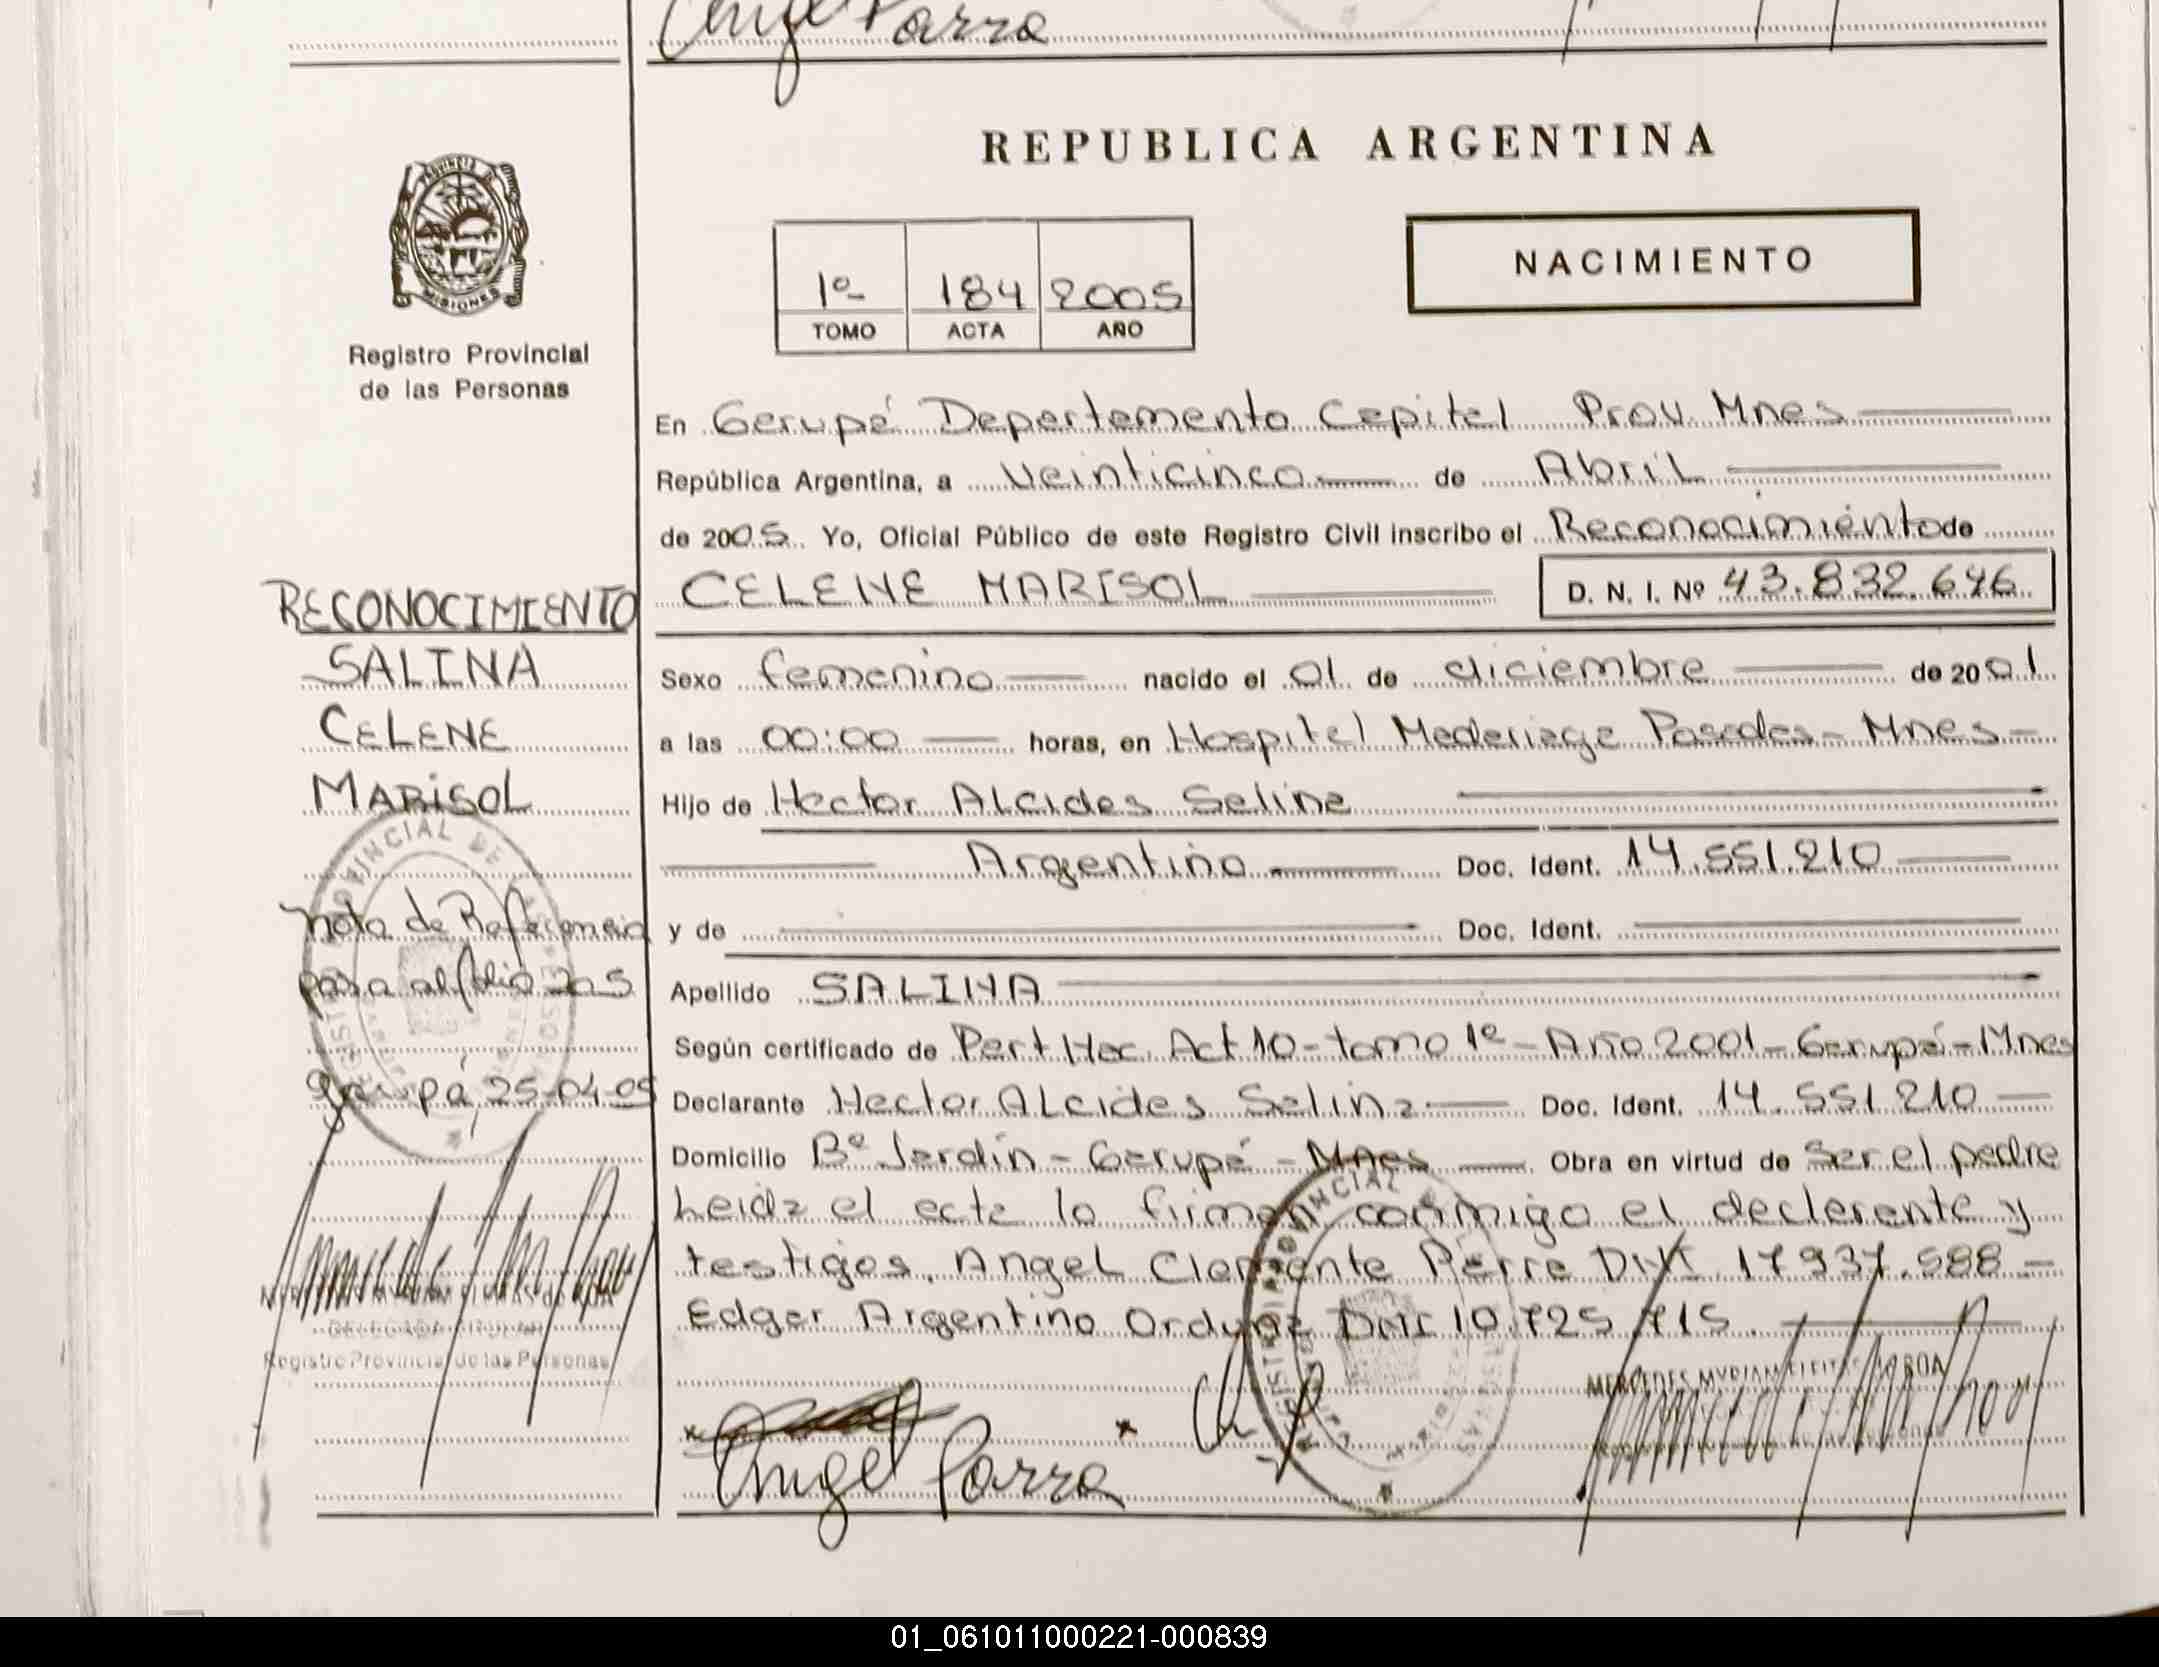 Angel Parra
REPUBLICA ARGENTINA
PROVINCIA DE
MISIONES
Registro Provincial
de las Personas
1º 184 2005
TOMO ACTA AÑO
NACIMIENTO
En Garupá Departamento Capital Prov. Mnes
República Argentina, a Veinticinco de Abril
de 2005. Yo, Oficial Público de este Registro Civil inscribo el Reconocimiento de
CELENE MARISOL D. N. I. Nº 43.832.646
Sexo femenino nacido el 01 de diciembre de 2001
a las 00:00 horas, en Hospital Madariaga Posadas - Mnes -
Hijo de Hector Alcides Salina
Argentino Doc. Ident. 14.551.210
y de Doc. Ident.
Apellido SALINA
Según certificado de Part Nac. Act 10 - tomo 1º - Año 2001 - Garupá - Mnes
Declarante Hector Alcides Salina Doc. Ident. 14.551210
Domicilio Bº Jardín - Garupá - Mnes Obra en virtud de Ser el padre
Leida el acta la firman conmigo el declarante y
testigos. Angel Clemente Parra DNI 17937.588 -
Edgar Argentino Ordyoz DNI 10.725.715.
Angel Parra
RECONOCIMIENTO
SALINA
CELENE
MARISOL
Nota de Referencia
para al folio 205
garupá, 25-04-05
DELEGADA TITULAR
Registro Provincial de las Personas
01_061011000221-000839